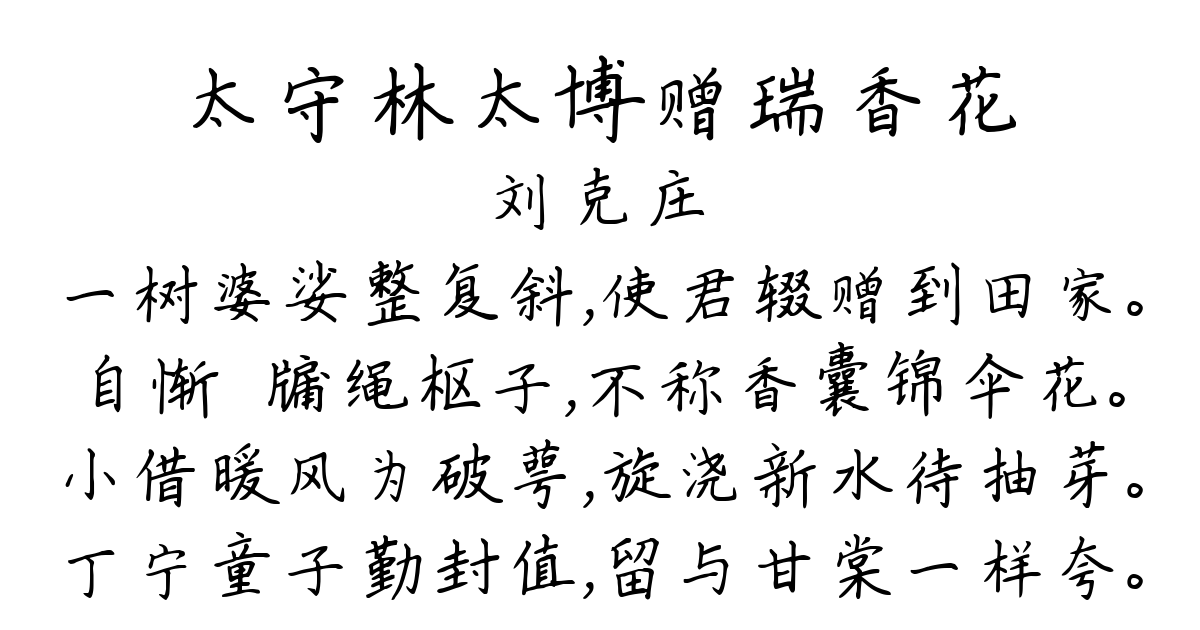 太守林太博赠瑞香花
刘克庄
一树婆娑整复斜,使君辍赠到田家。
自惭 牖绳枢子,不称香囊锦伞花。
小借暖风为破萼,旋浇新水待抽芽。
丁宁童子勤封值,留与甘棠一样夸。